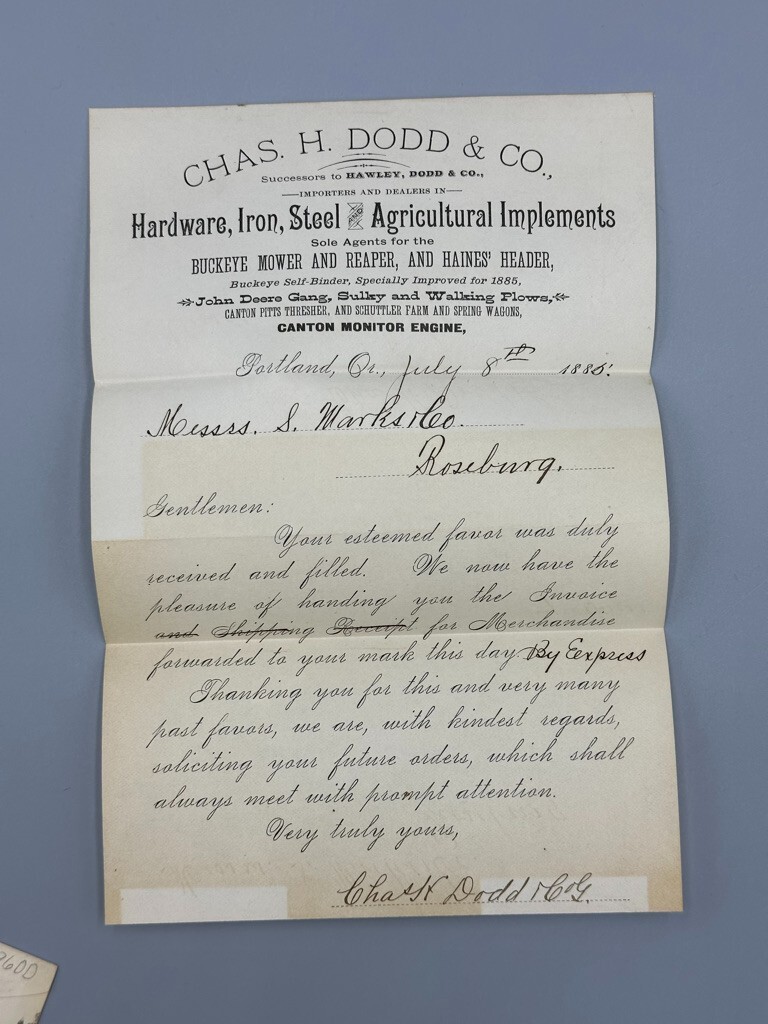 CHAS. H. DODD & CO.,
Successors to HAWLEY, DODD & CO.,
IMPORTERS AND DEALERS IN
Hardware, Iron, Steel AND Agricultural Implements
Sole Agents for the
BUCKEYE MOWER AND REAPER, AND HAINES' HEADER,
Buckeye Self-Binder, Specially Improved for 1885,
John Deere Gang, Sulky and Walking Plows,
CANTON PITTS THRESHER, AND SCHUTTLER FARM AND SPRING WAGONS,
CANTON MONITOR ENGINE,
Portland, Or., July 8th 1885.
Messrs. S. Marks & Co.
Roseburg.
Gentlemen:
Your esteemed favor was duly
received and filled. We now have the
pleasure of handing you the Invoice
and Shipping Receipt for Merchandise
forwarded to your mark this day By Express
Thanking you for this and very many
past favors, we are, with kindest regards,
soliciting your future orders, which shall
always meet with prompt attention.
Very truly yours,
Chas H Dodd & Co